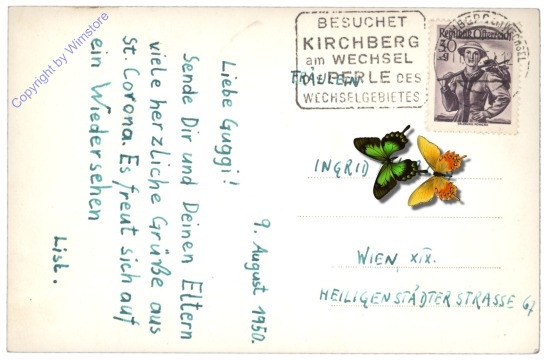 Copyright by Wimstore
BESUCHET
KIRCHBERG
am WECHSEL
PERLE DES
WECHSELGEBIETES
Republik Österreich
30
g
9. August 1950.
Liebe Guggi!
Sende Dir und Deinen Eltern
viele herzliche Grüße aus
St. Corona. Es freut sich auf
ein Wiedersehen
List.
FRÄULEIN
INGRID
WIEN, XIX.
HEILIGENSTÄDTERSTRASSE 67